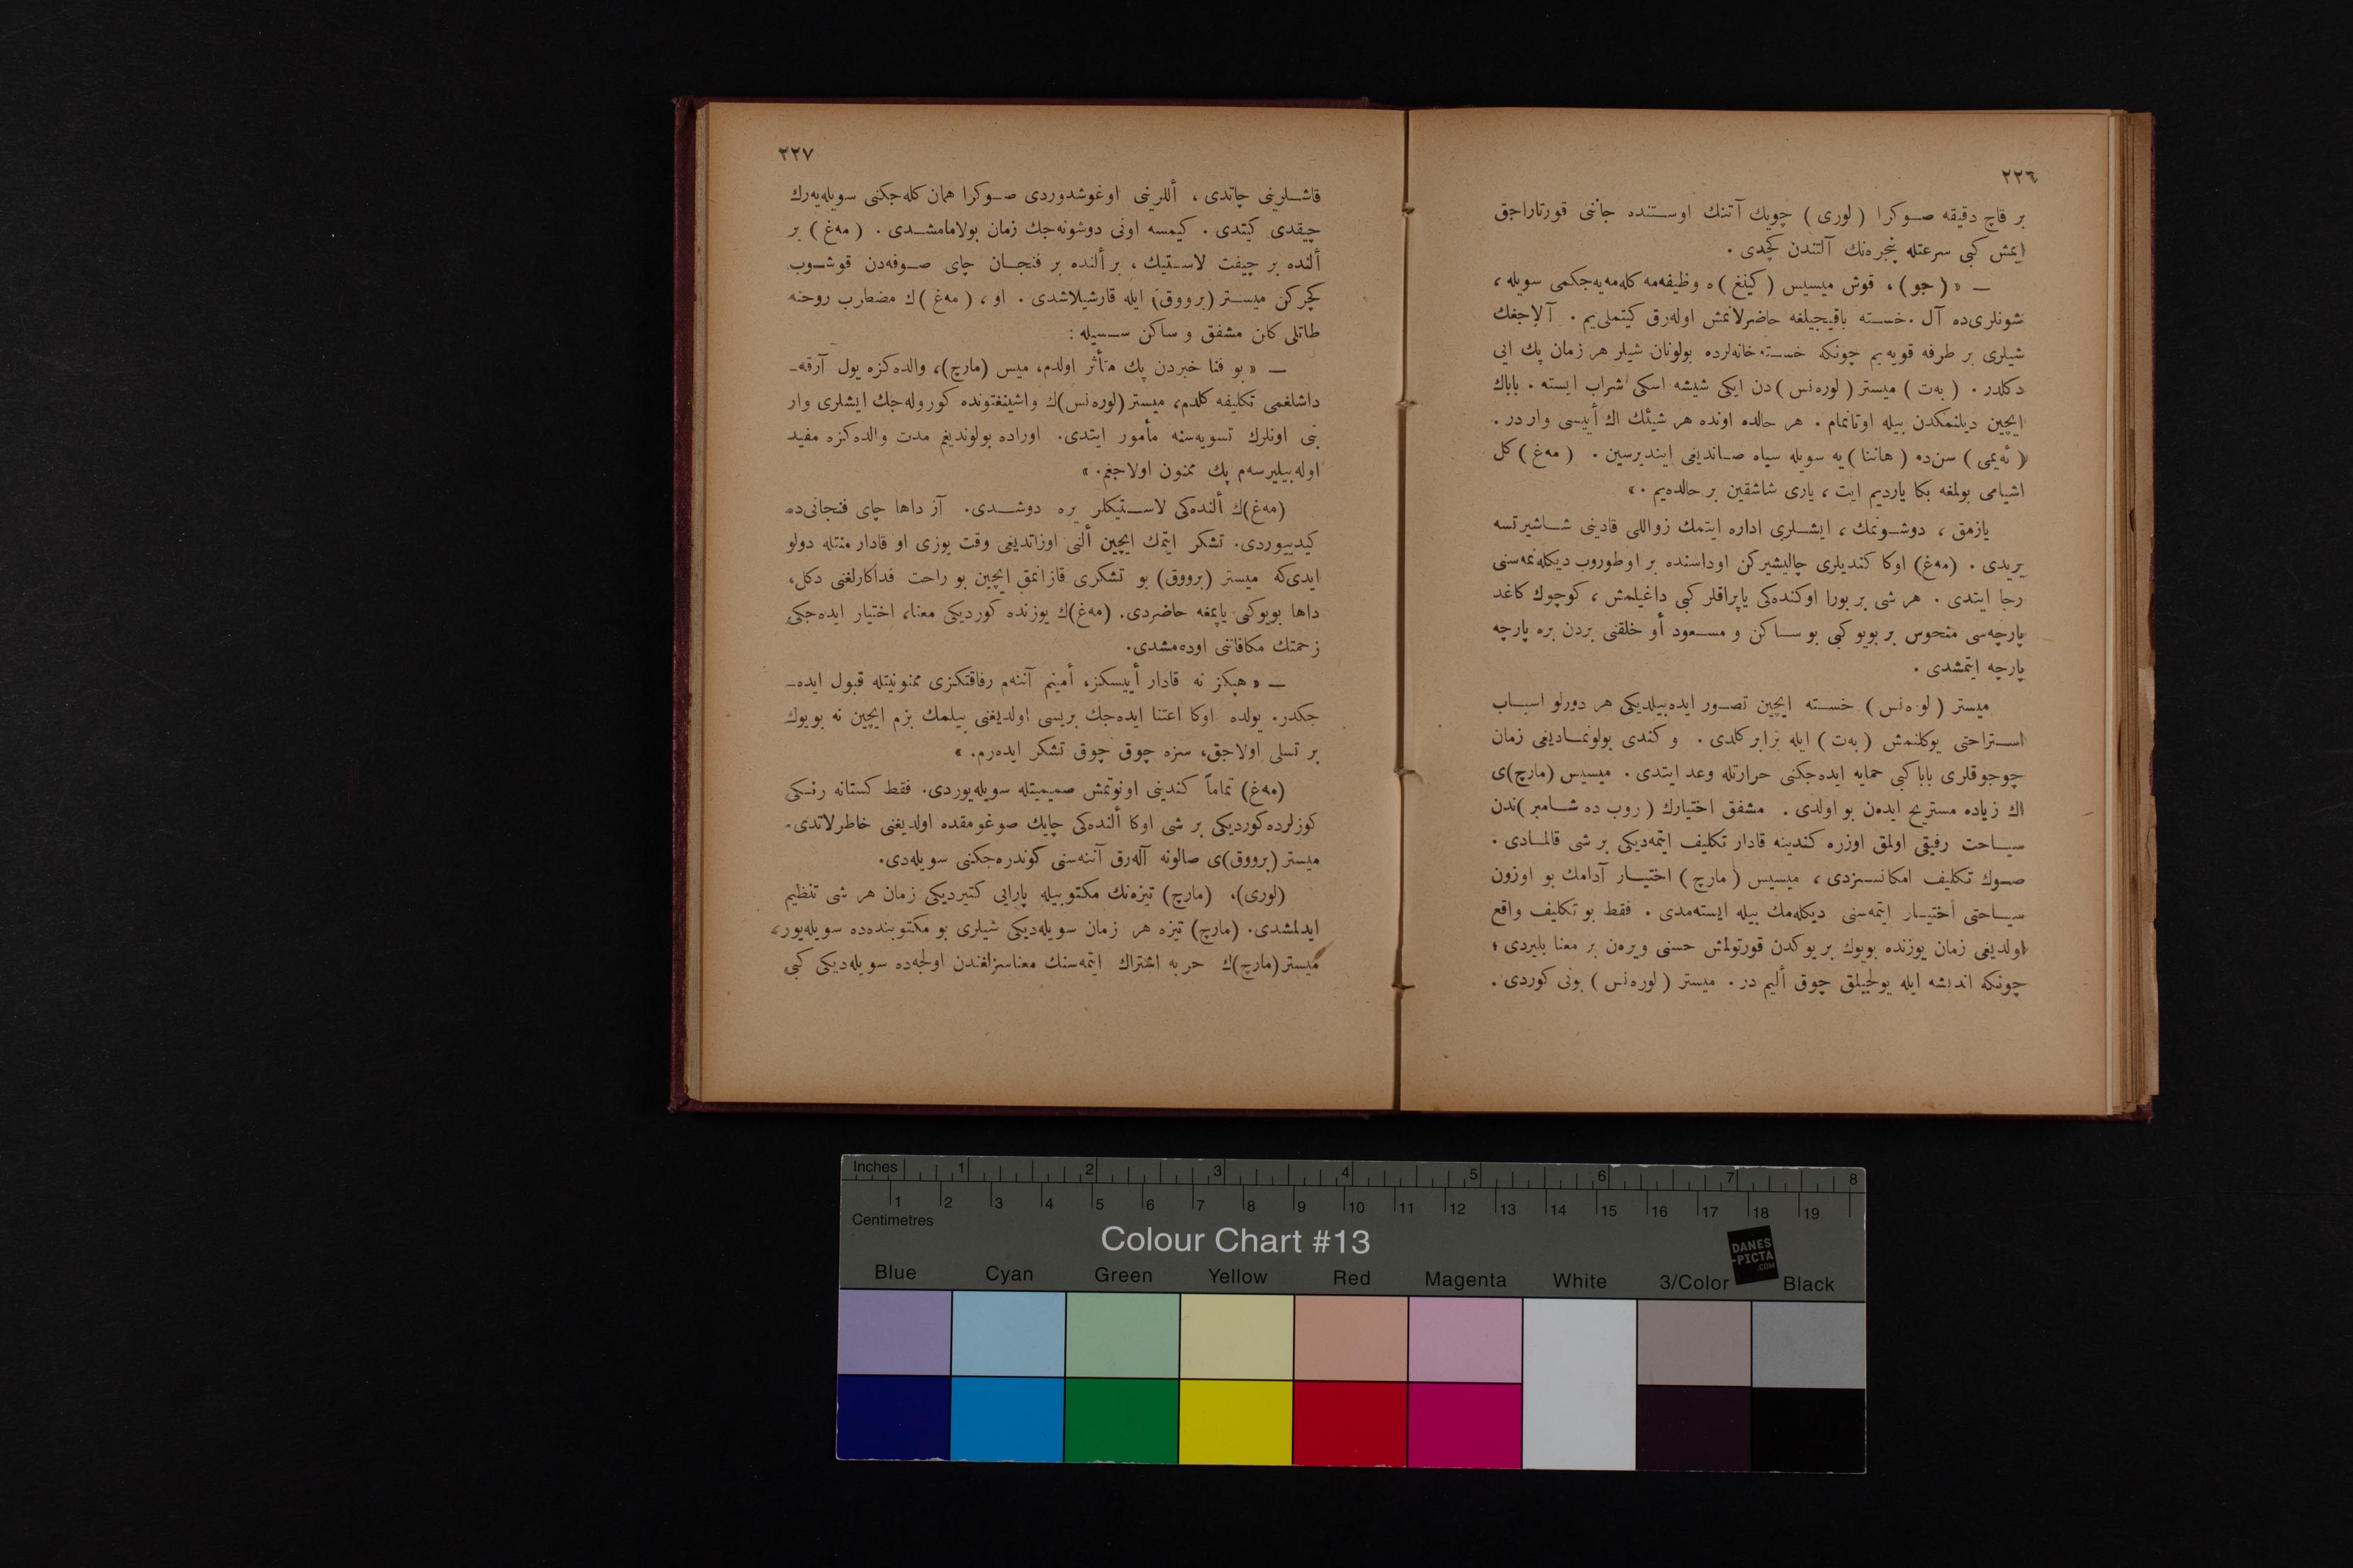 ٢٢٦
بر قاچ دقیقه صوكرا ( لوری ) چویك آتنك اوستنده جاننی قورتاراجق
ایمش كبی سرعتله پنجره‌نك آلتندن كچدی .
— « ( جو ) ، قوش میسیس ( كینغ ) ه وظیفه‌مه كله‌مه‌یه‌جكمی سویله ،
شونلری‌ده آل . خسته باقیجیلغه حاضرلانمش اوله‌رق كیتملی‌یم . آلاجغك
شیلری بر طرفه قویه‌یم چونكه خسته‌خانه‌لرده بولونان شیلر هر زمان پك ایی
دكلدر . ( به‌ت ) میستر ( لوره‌نس ) دن ایكی شیشه اسكی شراب ایسته . باباك
ایچین دیلنمكدن بیله اوتانمام . هر حالده اونده هر شیئك اك أییسی وار در .
( ئه‌یمی ) سن‌ده ( هاننا ) یه سویله سیاه صاندیغی ایندیرسین . ( مه‌غ ) كل
اشیامی بولمغه بكا یاردیم ایت ، یاری شاشقین بر حالده‌یم . »
یازمق ، دوشونمك ، ایشلری اداره ایتمك زواللی قادینی شاشیرتسه
یریدی . (مه‌غ) اوكا كندیلری چالیشیركن اوداسنده بر اوطوروب دیكله‌نمه‌سنی
رجا ایتدی . هر شی بر بورا اوكنده‌كی یاپراقلر كبی داغیلمش ، كوچوك كاغد
پارچه‌سی منحوس بر بویو كبی بو ساكن و مسعود أو خلقنی بردن بره پارچه
پارچه ایتمشدی .
میستر ( لوره‌نس ) خسته ایچین تصور ایده‌بیلدیكی هر دورلو اسباب
استراحتی یوكلنمش ( به‌ت ) ایله برابر كلدی . و كندی بولونمادیغی زمان
چوجوقلری بابا كبی حمایه ایده‌جكنی حرارتله وعد ایتدی . میسیس (مارچ)ی
اك زیاده مستریح ایده‌ن بو اولدی . مشفق اختیارك ( روب ده شامبر )ندن
سیاحت رفیقی اولمق اوزره كندینه قادار تكلیف ایتمه‌دیكی بر شی قالمادی .
صوك تكلیف امكانسزدی ، میسیس ( مارچ ) اختیار آدامك بو اوزون
سیاحتی أختیار ایتمه‌سنی دیكله‌مك بیله ایسته‌مدی . فقط بو تكلیف واقع
اولدیغی زمان یوزنده بویوك بر یوكدن قورتولمش حسنی ویره‌ن بر معنا بلیردی ؛
چونكه اندیشه ایله یولجیلق چوق ألیم در . میستر ( لوره‌نس ) بونی كوردی .
٢٢٧
قاشلرینی چاتدی ، أللرینی اوغوشدوردی صوكرا همان كله‌جكنی سویله‌یه‌رك
چیقدی كیتدی . كیمسه اونی دوشونه‌جك زمان بولامامشدی . ( مه‌غ ) بر
ألنده بر چیفت لاستیك ، بر ألنده بر فنجان چای صوفه‌دن قوشوب
كچركن میستر (برووق) ایله قارشیلاشدی . او ، ( مه‌غ )ك مضطرب روحنه
طاتلی كلن مشفق و ساكن سسیله :
— « بو فنا خبردن پك متأثر اولدم، میس (مارچ)، والده‌كزه یول آرقه‌ـ
داشلغمی تكلیفه كلدم، میستر (لوره‌نس)ك واشینغتونده كوروله‌جك ایشلری وار
بنی اونلرك تسویه‌سنه مأمور ایتدی. اوراده بولوندیغم مدت والده‌كزه مفید
اوله‌بیلیرسه‌م پك ممنون اولاجغم. »
(مه‌غ)ك ألنده‌كی لاستیكلر یره دوشدی. آز داها چای فنجانی‌ده
كیدییوردی. تشكر ایتمك ایچین ألنی اوزاتدیغی وقت یوزی او قادار منتله دولو
ایدی‌كه میستر (برووق) بو تشكری قازانمق ایچین بو راحت فداكارلغنی دكل،
داها بویوكنی یاپمغه حاضردی. (مه‌غ)ك یوزنده كوردیكی معنا، اختیار ایده‌جكی
زحمتك مكافاتنی اوده‌مشدی.
— « هپكز نه قادار أییسكز، أمینم آننه‌م رفاقتكزی ممنونیتله قبول ایده‌ـ
جكدر. یولده اوكا اعتنا ایده‌جك بریسی اولدیغنی بیلمك بزم ایچین نه بویوك
بر تسلی اولاجق، سزه چوق چوق تشكر ایده‌رم. »
(مه‌غ) تماماً كندینی اونوتمش صمیمیتله سویله‌یوردی. فقط كستانه رنكی
كوزلرده كوردیكی بر شی اوكا ألنده‌كی چایك صوغومقده اولدیغنی خاطرلاتدی.
میستر (برووق)ی صالونه آله‌رق آننه‌سنی كوندره‌جكنی سویله‌دی.
(لوری)، (مارچ) تیزه‌نك مكتوبیله پارایی كتیردیكی زمان هر شی تنظیم
ایدلمشدی. (مارچ) تیزه هر زمان سویله‌دیكی شیلری بو مكتوبنده‌ده سویله‌یور،
میستر (مارچ)ك حربه اشتراك ایتمه‌سنك معناسزلغندن اولجه‌ده سویله‌دیكی كبی
Inches 1 2 3 4 5 6 7 8
1 2 3 4 5 6 7 8 9 10 11 12 13 14 15 16 17 18 19
Centimetres
Colour Chart #13
DANES
-PICTA
.COM
Blue Cyan Green Yellow Red Magenta White 3/Color Black